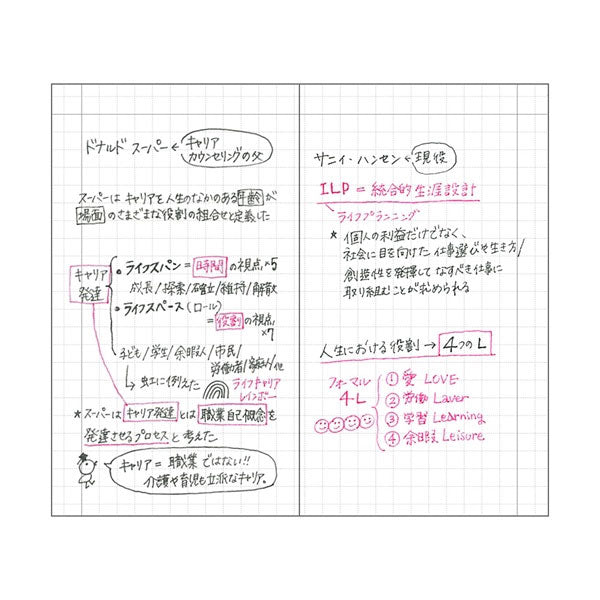 ドナルド スーパー ← キャリア
カウンセリングの父
スーパーは キャリアを人生のなかのある年齢が
場面のさまざまな役割の組合せと定義した
キャリア
発達
● ライフスパン = 時間の視点 ×5
成長/探索/確立/維持/解散
● ライフスペース (ロール)
= 役割の視点
×7
子ども/学生/余暇人/市民/
労働者/家庭人/他
↳ 虹に例えた
ライフキャリア
レインボー
* スーパーは キャリア発達 とは 職業自己概念 を
発達させるプロセス と考えた
キャリア = 職業 ではない!!
介護や育児も立派なキャリア。
サニィ・ハンセン ← 現役
ILP = 統合的生涯設計
ライフプランニング
* 個人の利益だけでなく、
社会に目を向けた仕事選びや生き方/
創造性を発揮して なすべき仕事に
取り組むことが求められる
人生における役割 → 4つのL
フォーマル
4L
① 愛 LOVE
② 労働 Laver
③ 学習 Learning
④ 余暇 Leisure